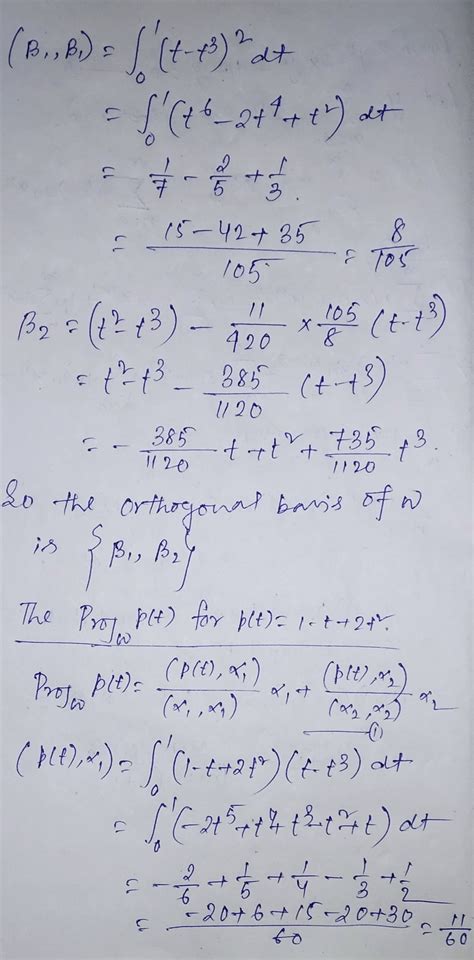 (β₁, β₁) = ∫₀¹ (t-t³)² dt
= ∫₀¹ (t⁶ - 2t⁴ + t²) dt
= 1/7 - 2/5 + 1/3.
= (15 - 42 + 35)/105 = 8/105
β₂ = (t² - t³) - 11/420 × 105/8 (t-t³)
= t² - t³ - 385/1120 (t-t³)
= - 385/1120 t + t² + 735/1120 t³.
So the orthogonal basis of W
is {β₁, β₂}
The Proj_W p(t) for p(t) = 1-t+2t².
Proj_W p(t) = (p(t), α₁)/(α₁, α₁) α₁ + (p(t), α₂)/(α₂, α₂) α₂
①
(p(t), α₁) = ∫₀¹ (1-t+2t²)(t-t³) dt
= ∫₀¹ (-2t⁵ + t⁴ + t³ - t² + t) dt
= - 2/6 + 1/5 + 1/4 - 1/3 + 1/2
= (-20 + 6 + 15 - 20 + 30)/60 = 11/60